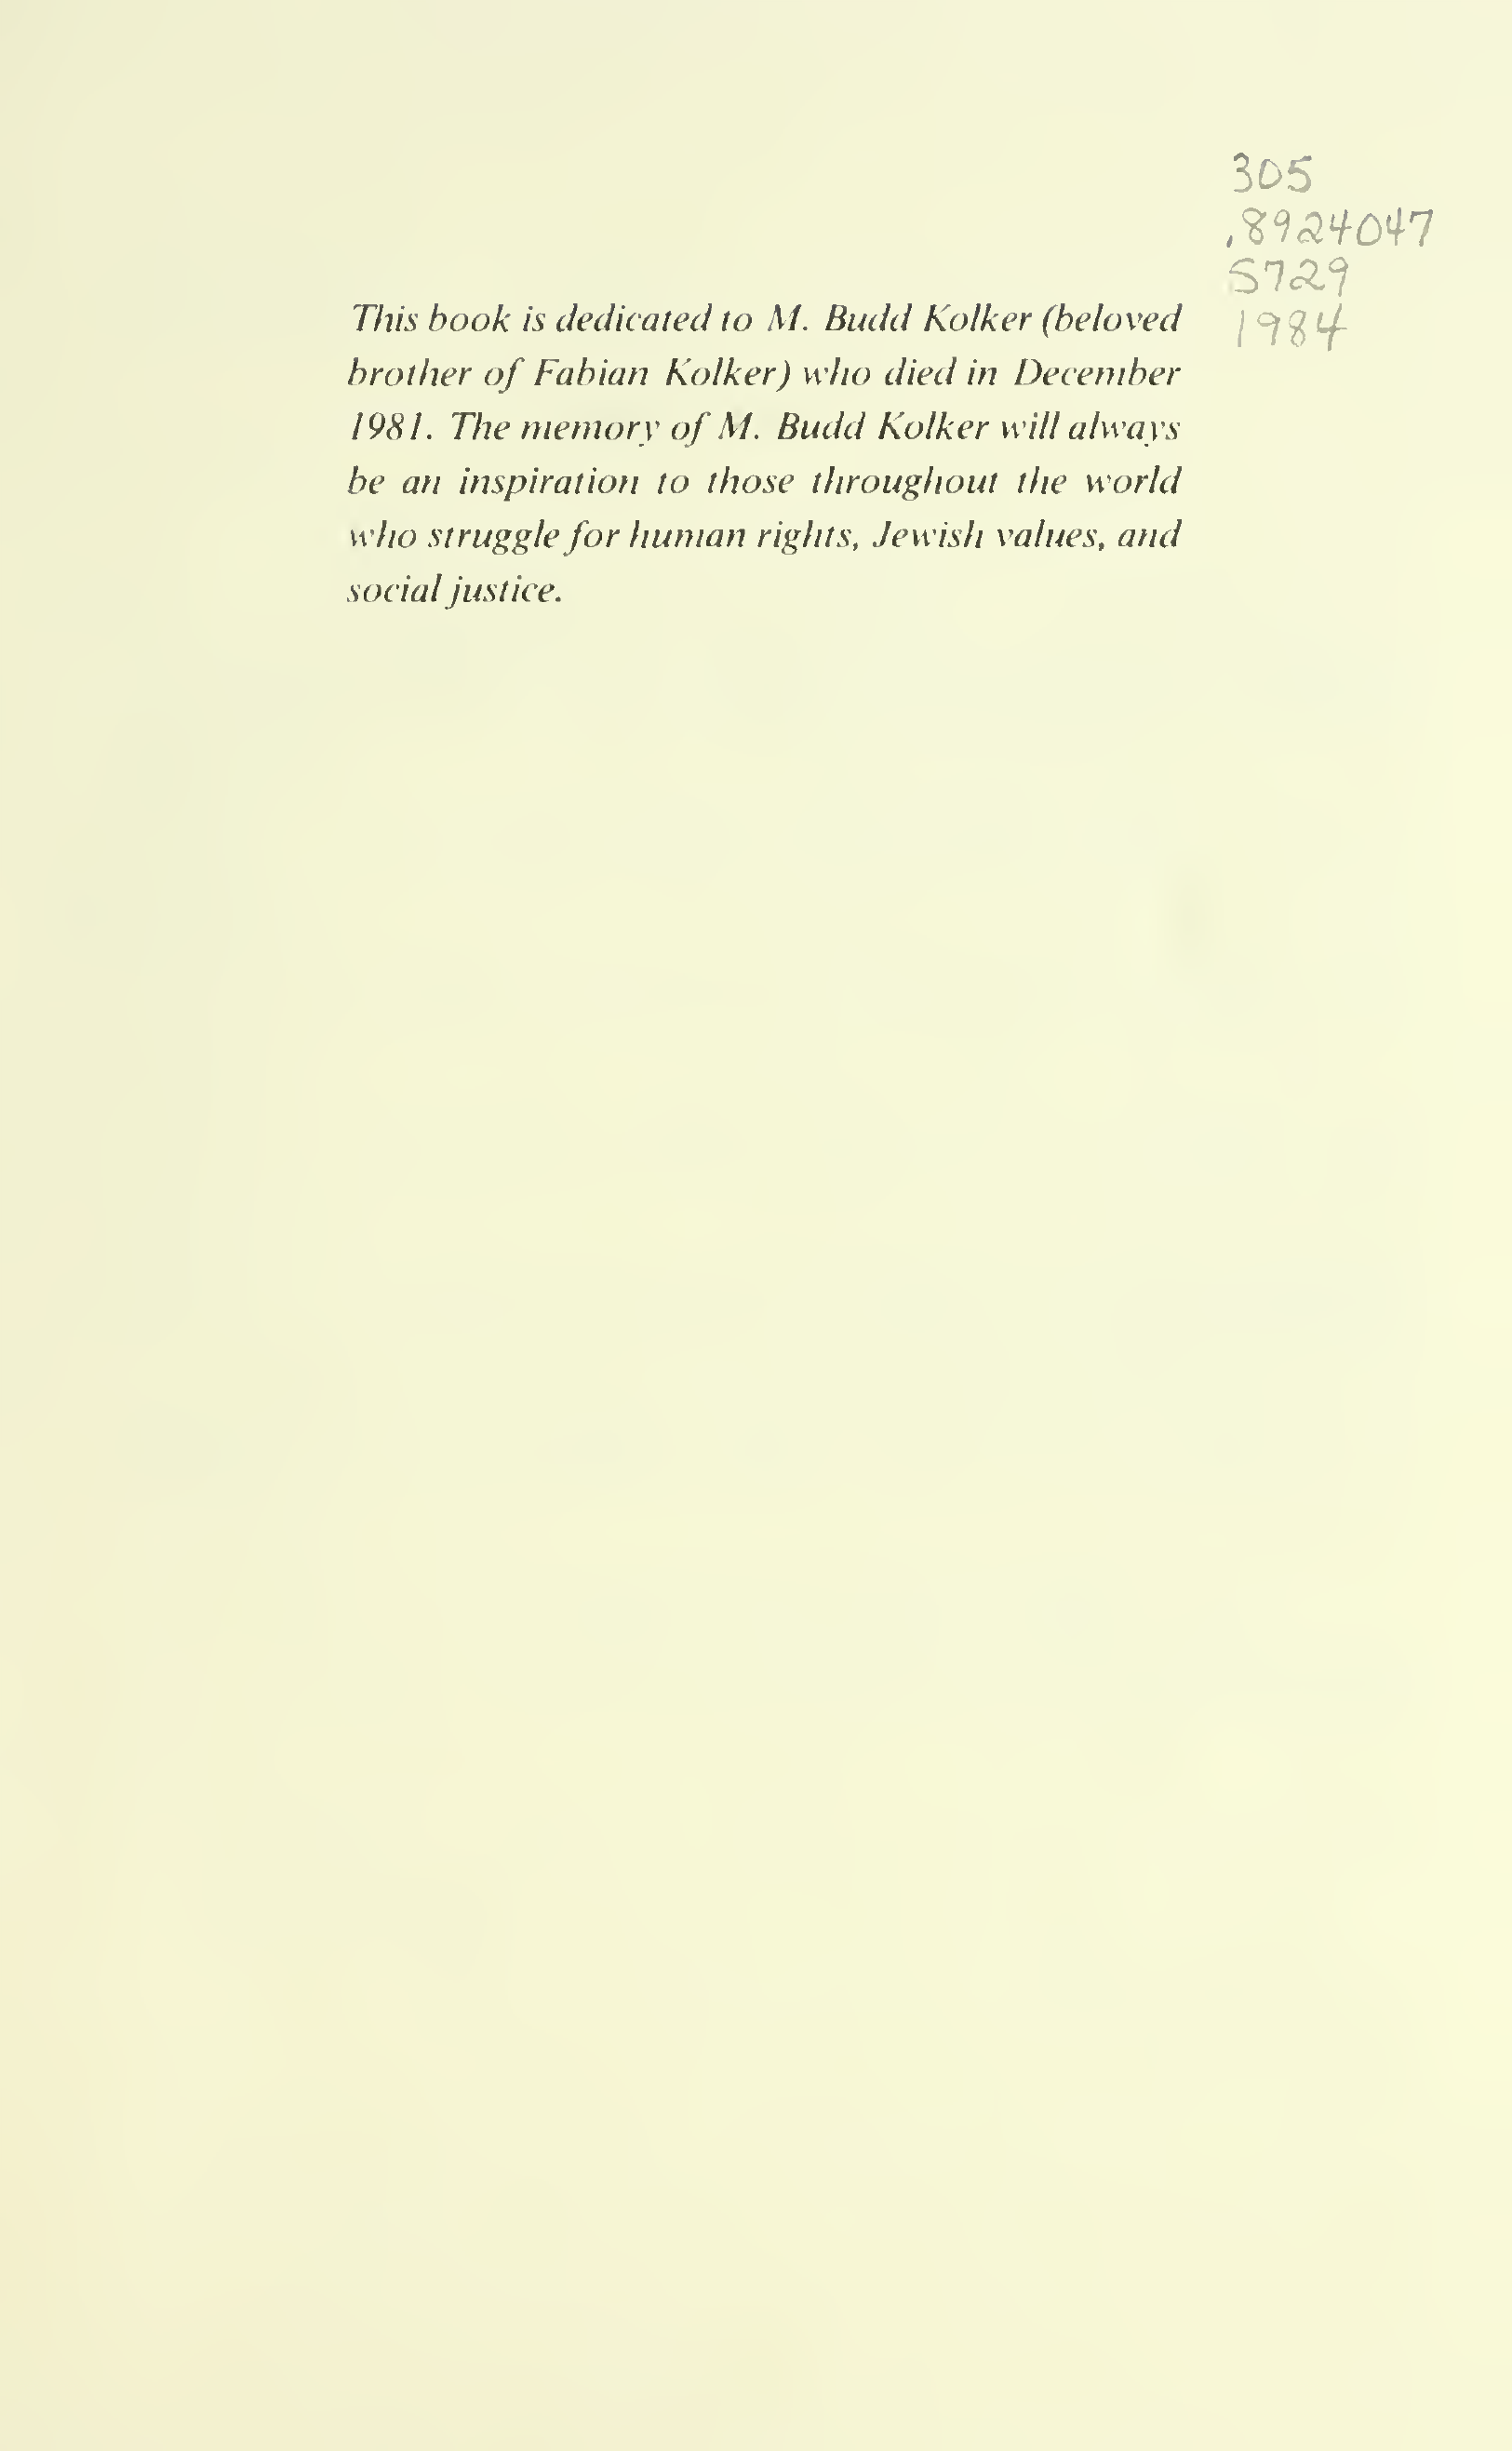 305
.8924047
S729
1984
This book is dedicated to M. Budd Kolker (beloved
brother of Fabian Kolker) who died in December
1981. The memory of M. Budd Kolker will always
be an inspiration to those throughout the world
who struggle for human rights, Jewish values, and
social justice.